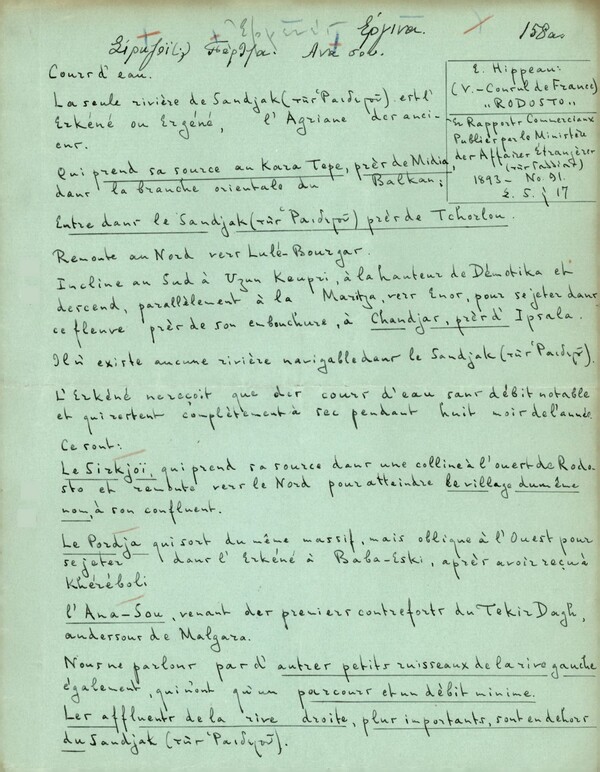 Ἐργίνης Ἐργινα. 158α.
Σιρτζόϊ(;) Πόρδζα. Ἀνά σου.
Cours d'eau.
E. Hippeau:
(V.-Consul de France)
"RODOSTO"
En Rapports Commerciaux
Publiés par le Ministère
des Affaires Etrangères
1893 - No. 91.
Σ. 5. ἕ 17
La seule rivière de Sandjak (τῆς Ραιδεστοῦ) est l'
Erkéné ou Ergéné, l'Agriane des anci-
ens.
Qui prend sa source au Kara Tépé, près de Midia,
dans la branche orientale du Balkan;
Entre dans le Sandjak (τῆς Ραιδεστοῦ) près de Tchorlou.
Remonte au Nord vers Lulé-Bourgas.
Incline au Sud à Uzun Keupri, à la hauteur de Démotika et
descend, parallèlement à la Maritza, vers Enos, pour se jeter dans
ce fleuve près de son embouchure, à Chandjas, près d'Ipsala.
Il n'existe aucune rivière navigable dans le Sandjak (τῆς Ραιδεστοῦ).
L'Erkéné ne reçoit que des cours d'eau sans débit notable
et qui restent complètement à sec pendant huit mois de l'année.
Ce sont:
Le Sirkjoï, qui prend sa source dans une colline à l'ouest de Rodo-
sto et remonte vers le Nord pour atteindre le village du même
nom, à son confluent.
Le Pordja qui sort du même massif, mais oblique à l'Ouest pour
se jeter dans l'Erkéné à Baba-Eski, après avoir reçu à
Khéréboli
l'Ana-Sou, venant des premiers contreforts du Tekir Dagh,
au dessous de Malgara.
Nous ne parlons pas d'autres petits ruisseaux de la rive gauche
également, qui n'ont qu'un parcours et un débit minime.
Les affluents de la rive droite, plus importants, sont en dehors
du Sandjak (τῆς Ραιδεστοῦ).